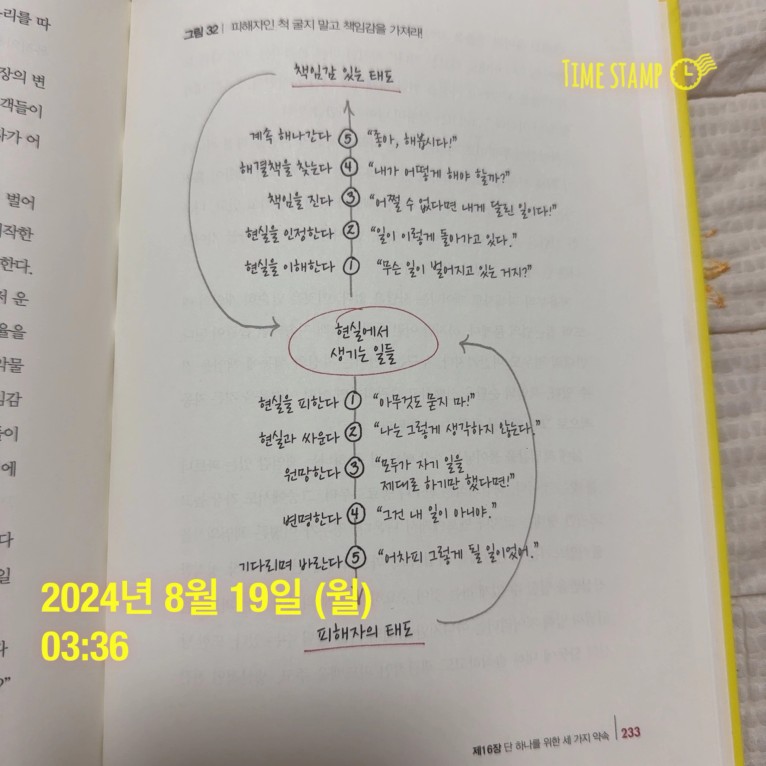 그림 32 | 피해자인 척 굴지 말고 책임감을 가져라!
TIME STAMP
책임감 있는 태도
계속 해나간다 5 "좋아, 해봅시다!"
해결책을 찾는다 4 "내가 어떻게 해야 할까?"
책임을 진다 3 "어쩔 수 없다면 내게 달린 일이다!"
현실을 인정한다 2 "일이 이렇게 돌아가고 있다."
현실을 이해한다 1 "무슨 일이 벌어지고 있는 거지?"
현실에서
생기는 일들
현실을 피한다 1 "아무것도 묻지 마!"
현실과 싸운다 2 "나는 그렇게 생각하지 않는다."
원망한다 3 "모두가 자기 일을
제대로 하기만 했다면!"
변명한다 4 "그건 내 일이 아니야."
기다리며 바란다 5 "어차피 그렇게 될 일이었어."
피해자의 태도
2024년 8월 19일 (월)
03:36
제16장 단 하나를 위한 세 가지 약속 | 233
리를 따
장의 변
객들이
가 어
벌어
작한
한다.
저 운
율을
약물
임감
들이
에
다
일